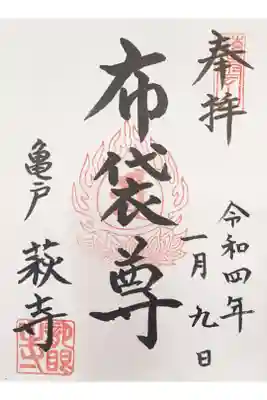 奉拝
令和四年
一月九日
布袋尊
亀戸
萩寺